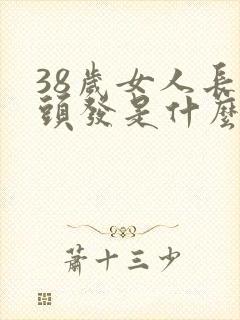 38歲女人長
頭發是什麼
蕭十三少